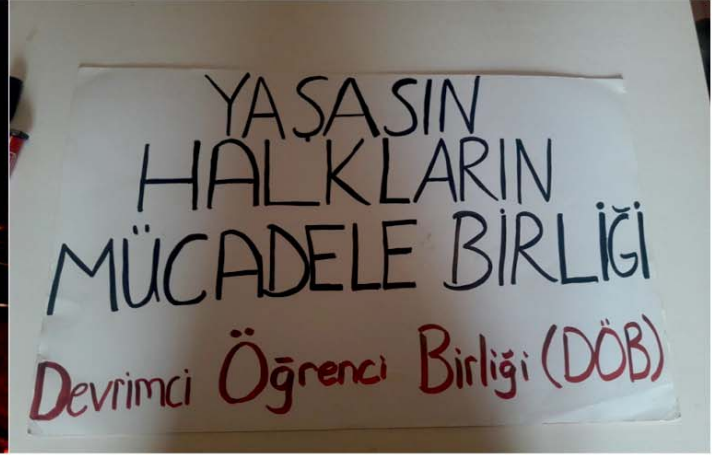 YAŞASIN
HALKLARIN
MÜCADELE BİRLİĞİ
Devrimci Öğrenci Birliği (DÖB)